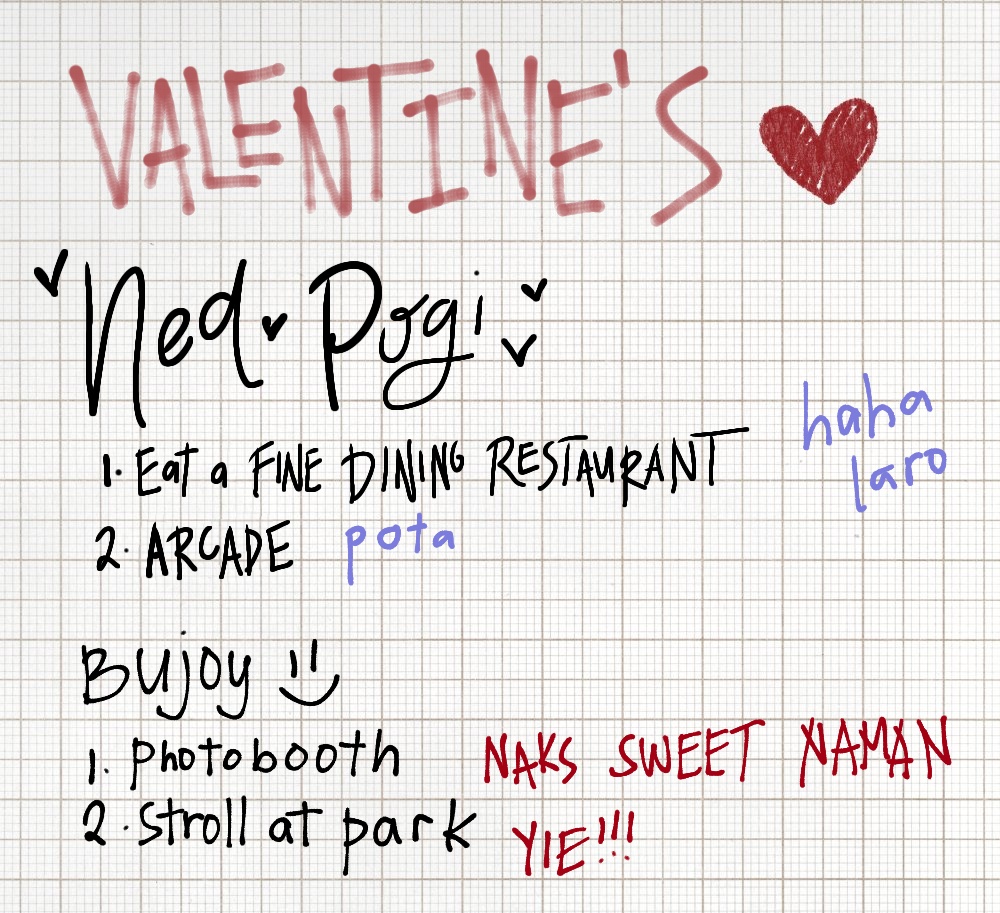 VALENTINE'S
Ned Pogi
1. Eat a FINE DINING RESTAURANT
haha
laro
2. ARCADE pota
Bujoy
1. photobooth
2. Stroll at park
NAKS SWEET NAMAN
YIE!!!